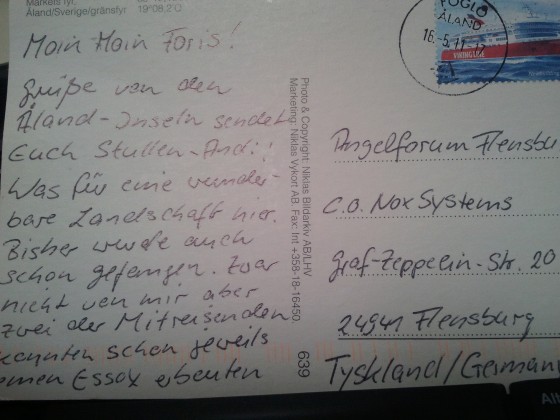 Märkets fyr,
Åland/Sverige/gränsfyr 19°08,2'O
Moin Moin Foris!
Grüße von den
Åland-Inseln sendet
Euch Stullen-Andi!
Was für eine wunder-
bare Landschaft hier.
Bisher wurde auch
schon gefangen. Zwar
nicht von mir aber
zwei der Mitreisenden
konnten schon jeweils
einen Essox erbeuten
Photo & Copyright: Niklas Bildarkiv AB/LHV
Marketing: Niklas Vykort AB Fax: Int +358-18-16450
639
FÖGLÖ
ÅLAND
16.5.11-17
VIKING LINE
Angelforum Flensbu
c.o. Nox Systems
Graf-Zeppelin-Str. 20
24941 Flensburg
Tyskland/German